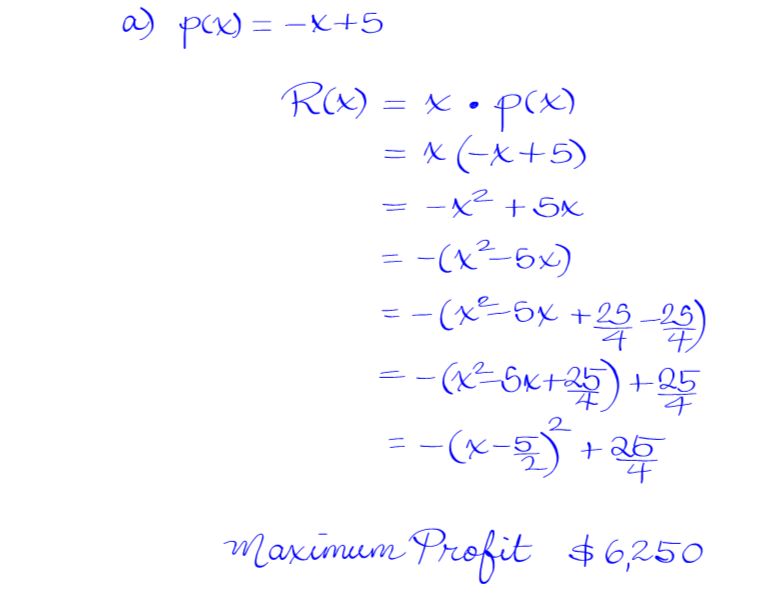 a) p(x) = -x+5
R(x) = x • p(x)
= x(-x+5)
= -x² + 5x
= -(x²-5x)
= -(x²-5x + 25/4 - 25/4)
= -(x²-5x+25/4) + 25/4
= -(x-5/2)² + 25/4
Maximum Profit $6,250